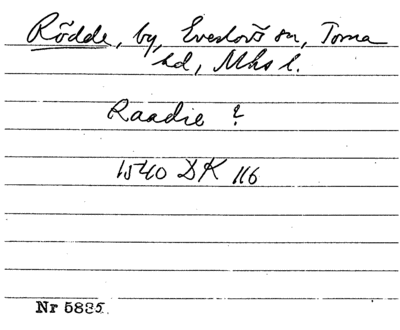 Rödde, by, Eveslövs sn, Torna
hd, Mhs l.
Raadie ?
1540 DK 116
Nr 5885.